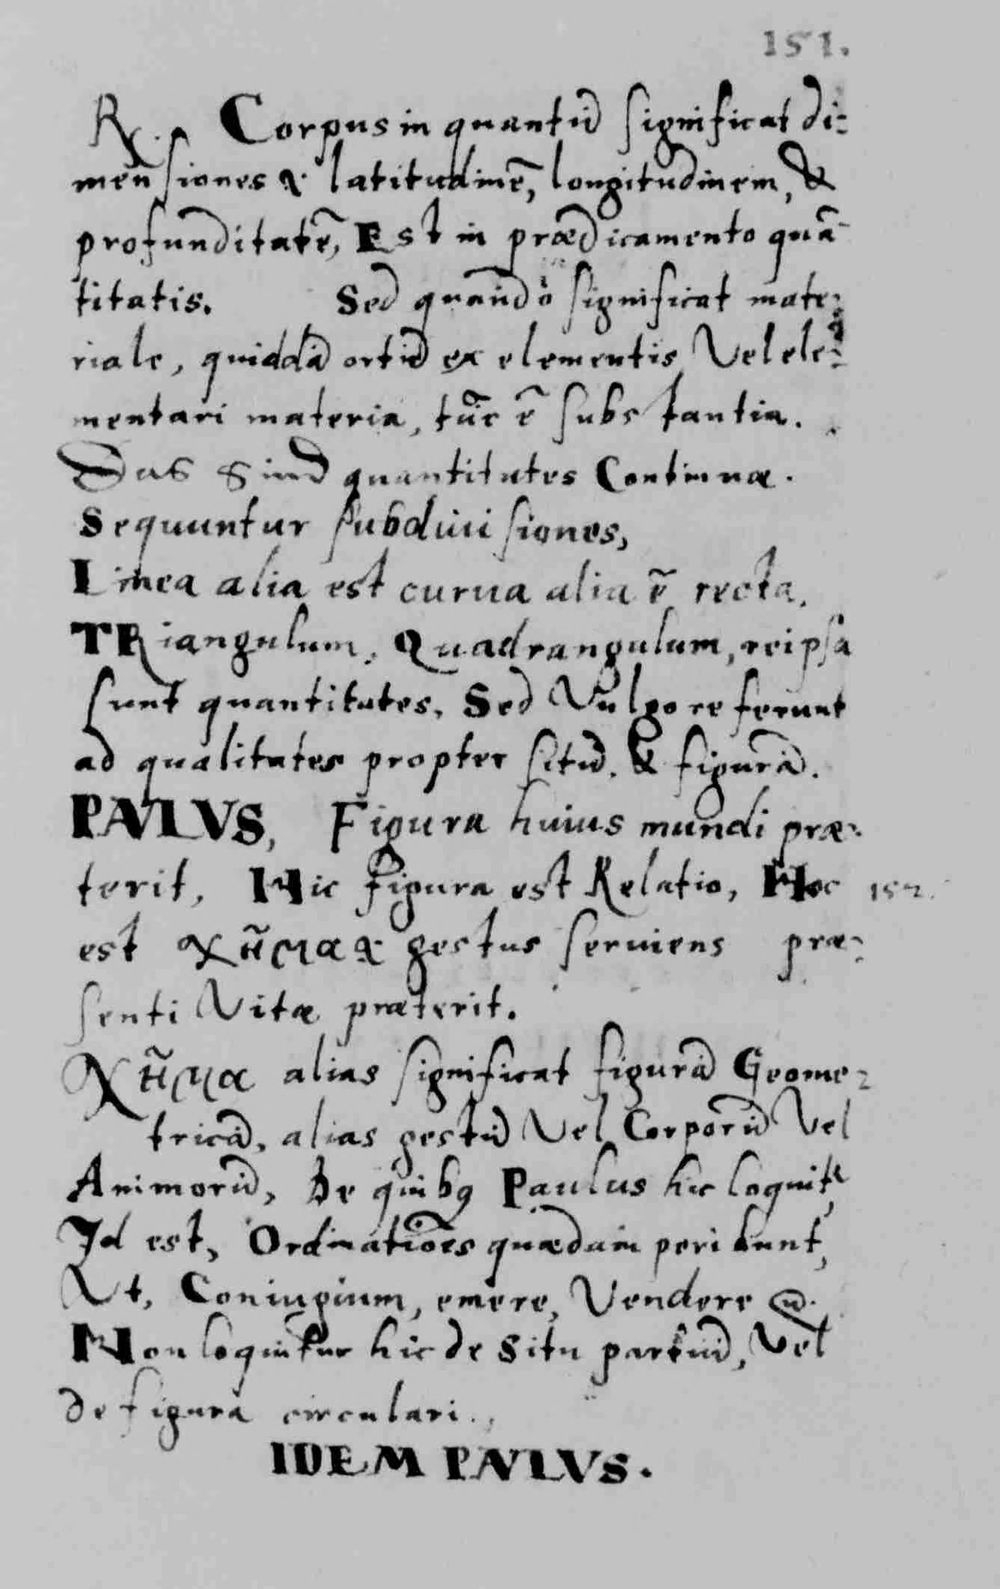 151.
R. Corpus in quantũ significat di-
mensiones & latitudinẽ, longitudinem, &
profunditatẽ, Est in prædicamento quã
titatis. Sed quando significat mate-
riale, quiddã ortũ ex elementis Vel ele-
mentari materia, tũc ẽ substantia.
Das Sind quantitates Continuæ.
Sequuntur subdiuisiones,
Linea alia est curua alia ẽ recta.
TRiangulum, Quadrangulum, reipsa
sunt quantitates, Sed Vulgo referunt
ad qualitates propter sitũ. & figurã.
PAVLVS, Figura huius mundi præ-
terit, Hic figura est Relatio, Hoc 152.
est χῆμα & gestus seruiens præ-
senti Vitæ præterit.
χῆμα alias significat figurã Geome-
tricã, alias gestũ Vel Corporũ Vel
Animorũ, De quibꝫ Paulus hic loquit᷑,
Id est, Ordinatiões quædam peribunt,
Vt, Coniugium, emere, Vendere
Non loquitur hic de Situ partiũ, Vel
de figura circulari.
IDEM PAVLVS.